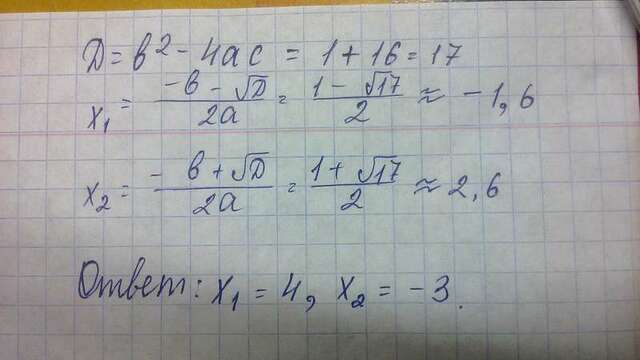 Д = b² - 4ac = 1 + 16 = 17
x₁ = (-b - √D)/2a = (1 - √17)/2 ≈ -1,6
x₂ = (-b + √D)/2a = (1 + √17)/2 ≈ 2,6
Ответ: x₁ = 4, x₂ = -3.